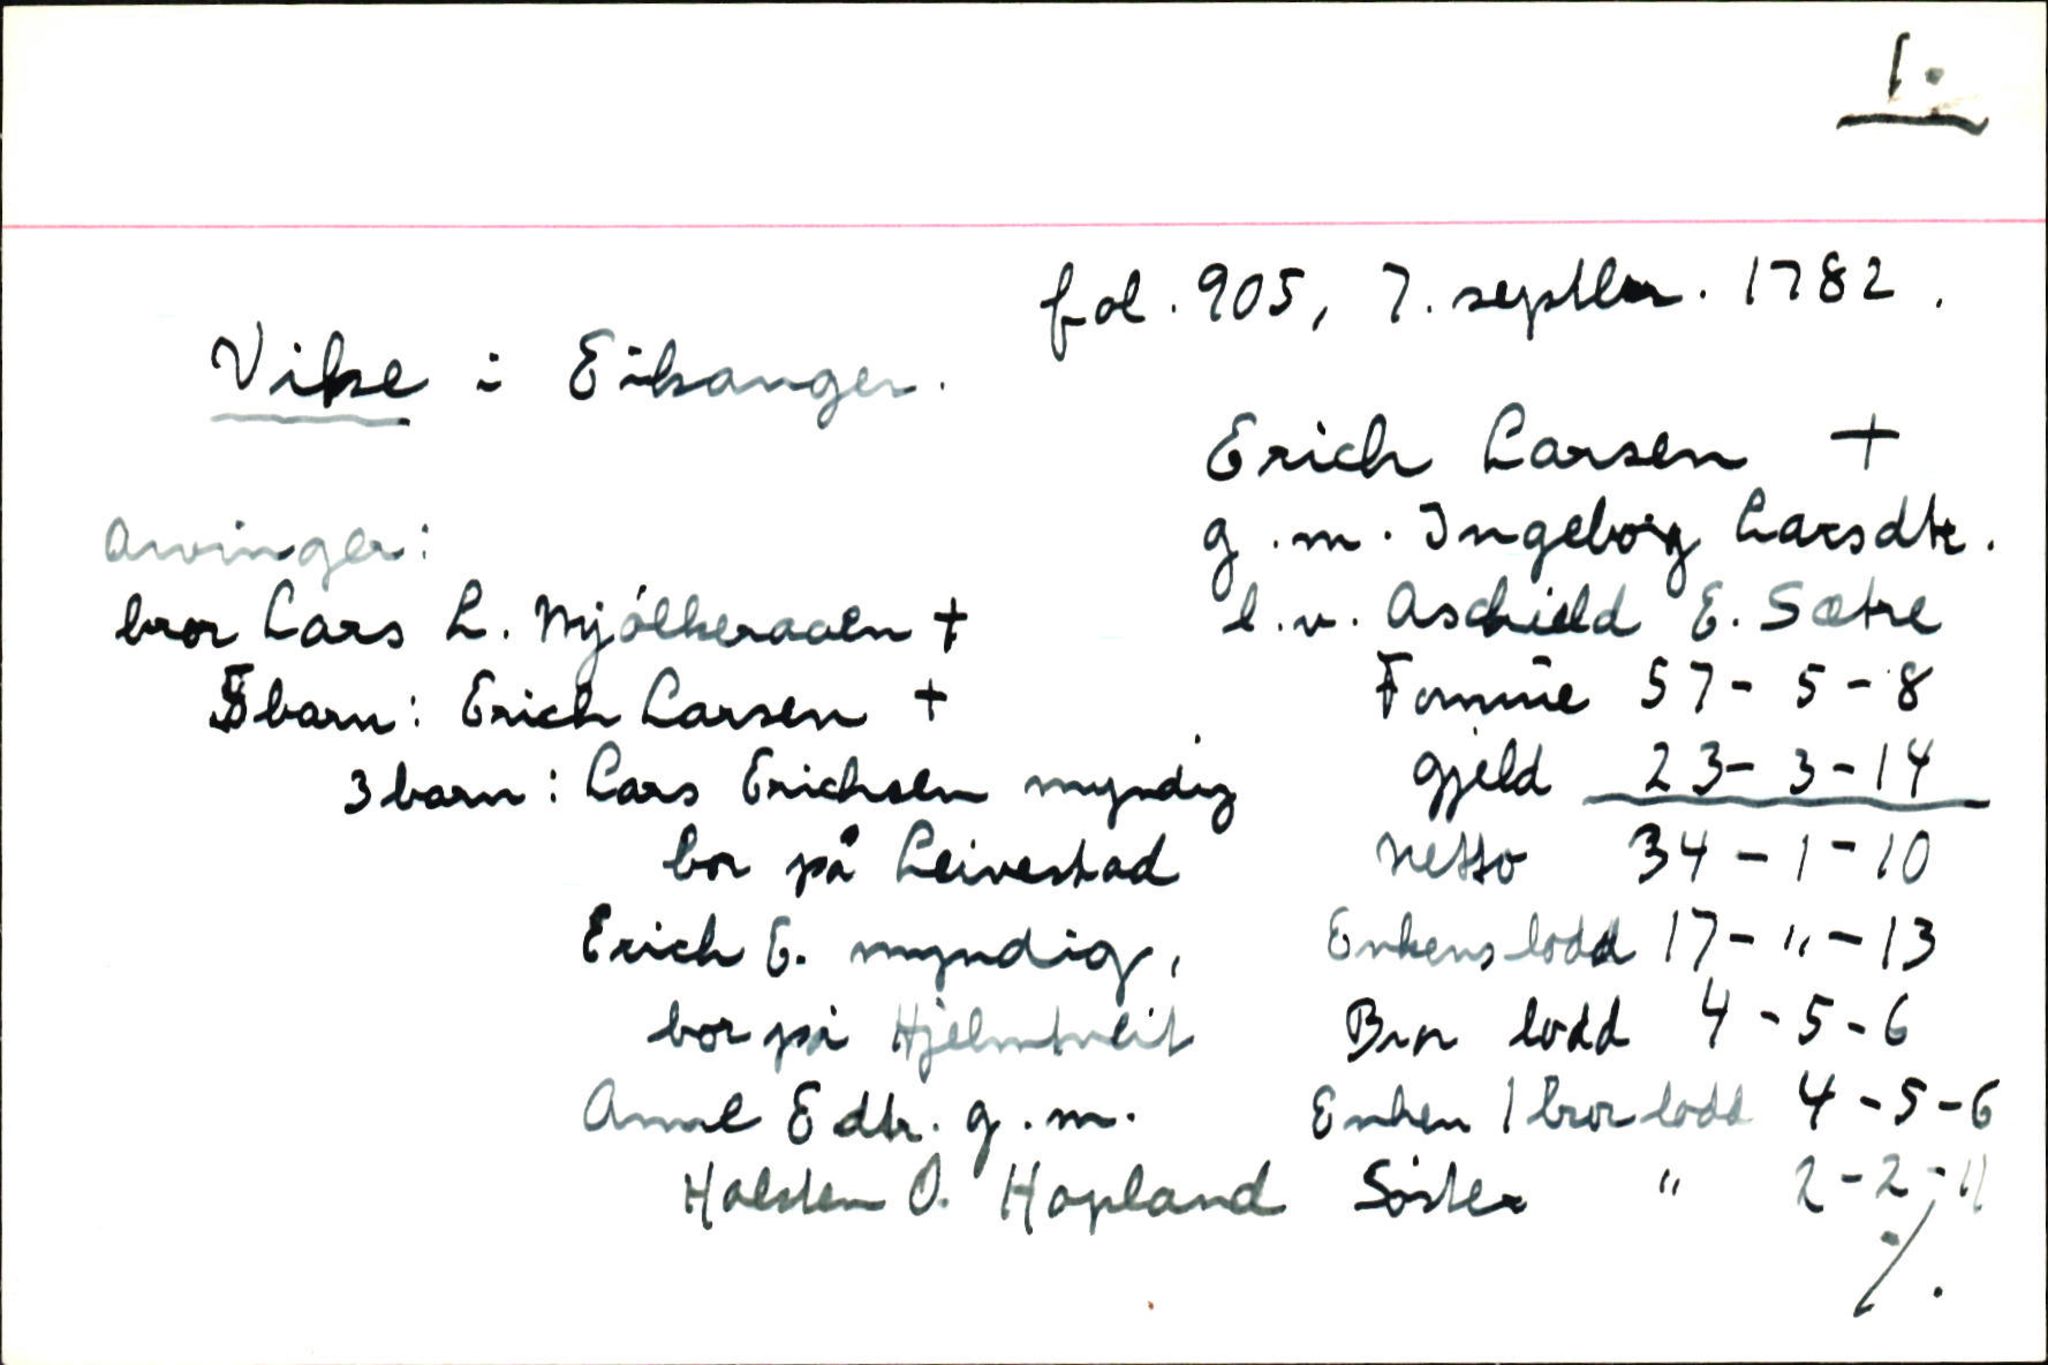 1.
fol. 905, 7. septbr. 1782.
Vikse i Eiksanger.
Erich Larsen +
g.m. Ingeborg Larsdtr.
l.v. Aschield E. Sætre
Arvinger:
bror Lars L. Mjölkeraaen +
5 barn: Erich Larsen +
3 barn: Lars Erichsen myndig
bor på Leivestad
Erich E. myndig,
bor på Hjelmtveit
Anne E dtr. g.m.
Holsten O. Hopland
Formue 57 - 5 - 8
gjeld 23 - 3 - 14
netto 34 - 1 - 10
Enkens lodd 17 - " - 13
Bror lodd 4 - 5 - 6
Enken 1 bror lodd 4 - 5 - 6
Søster " 2 - 2 - 11
./.